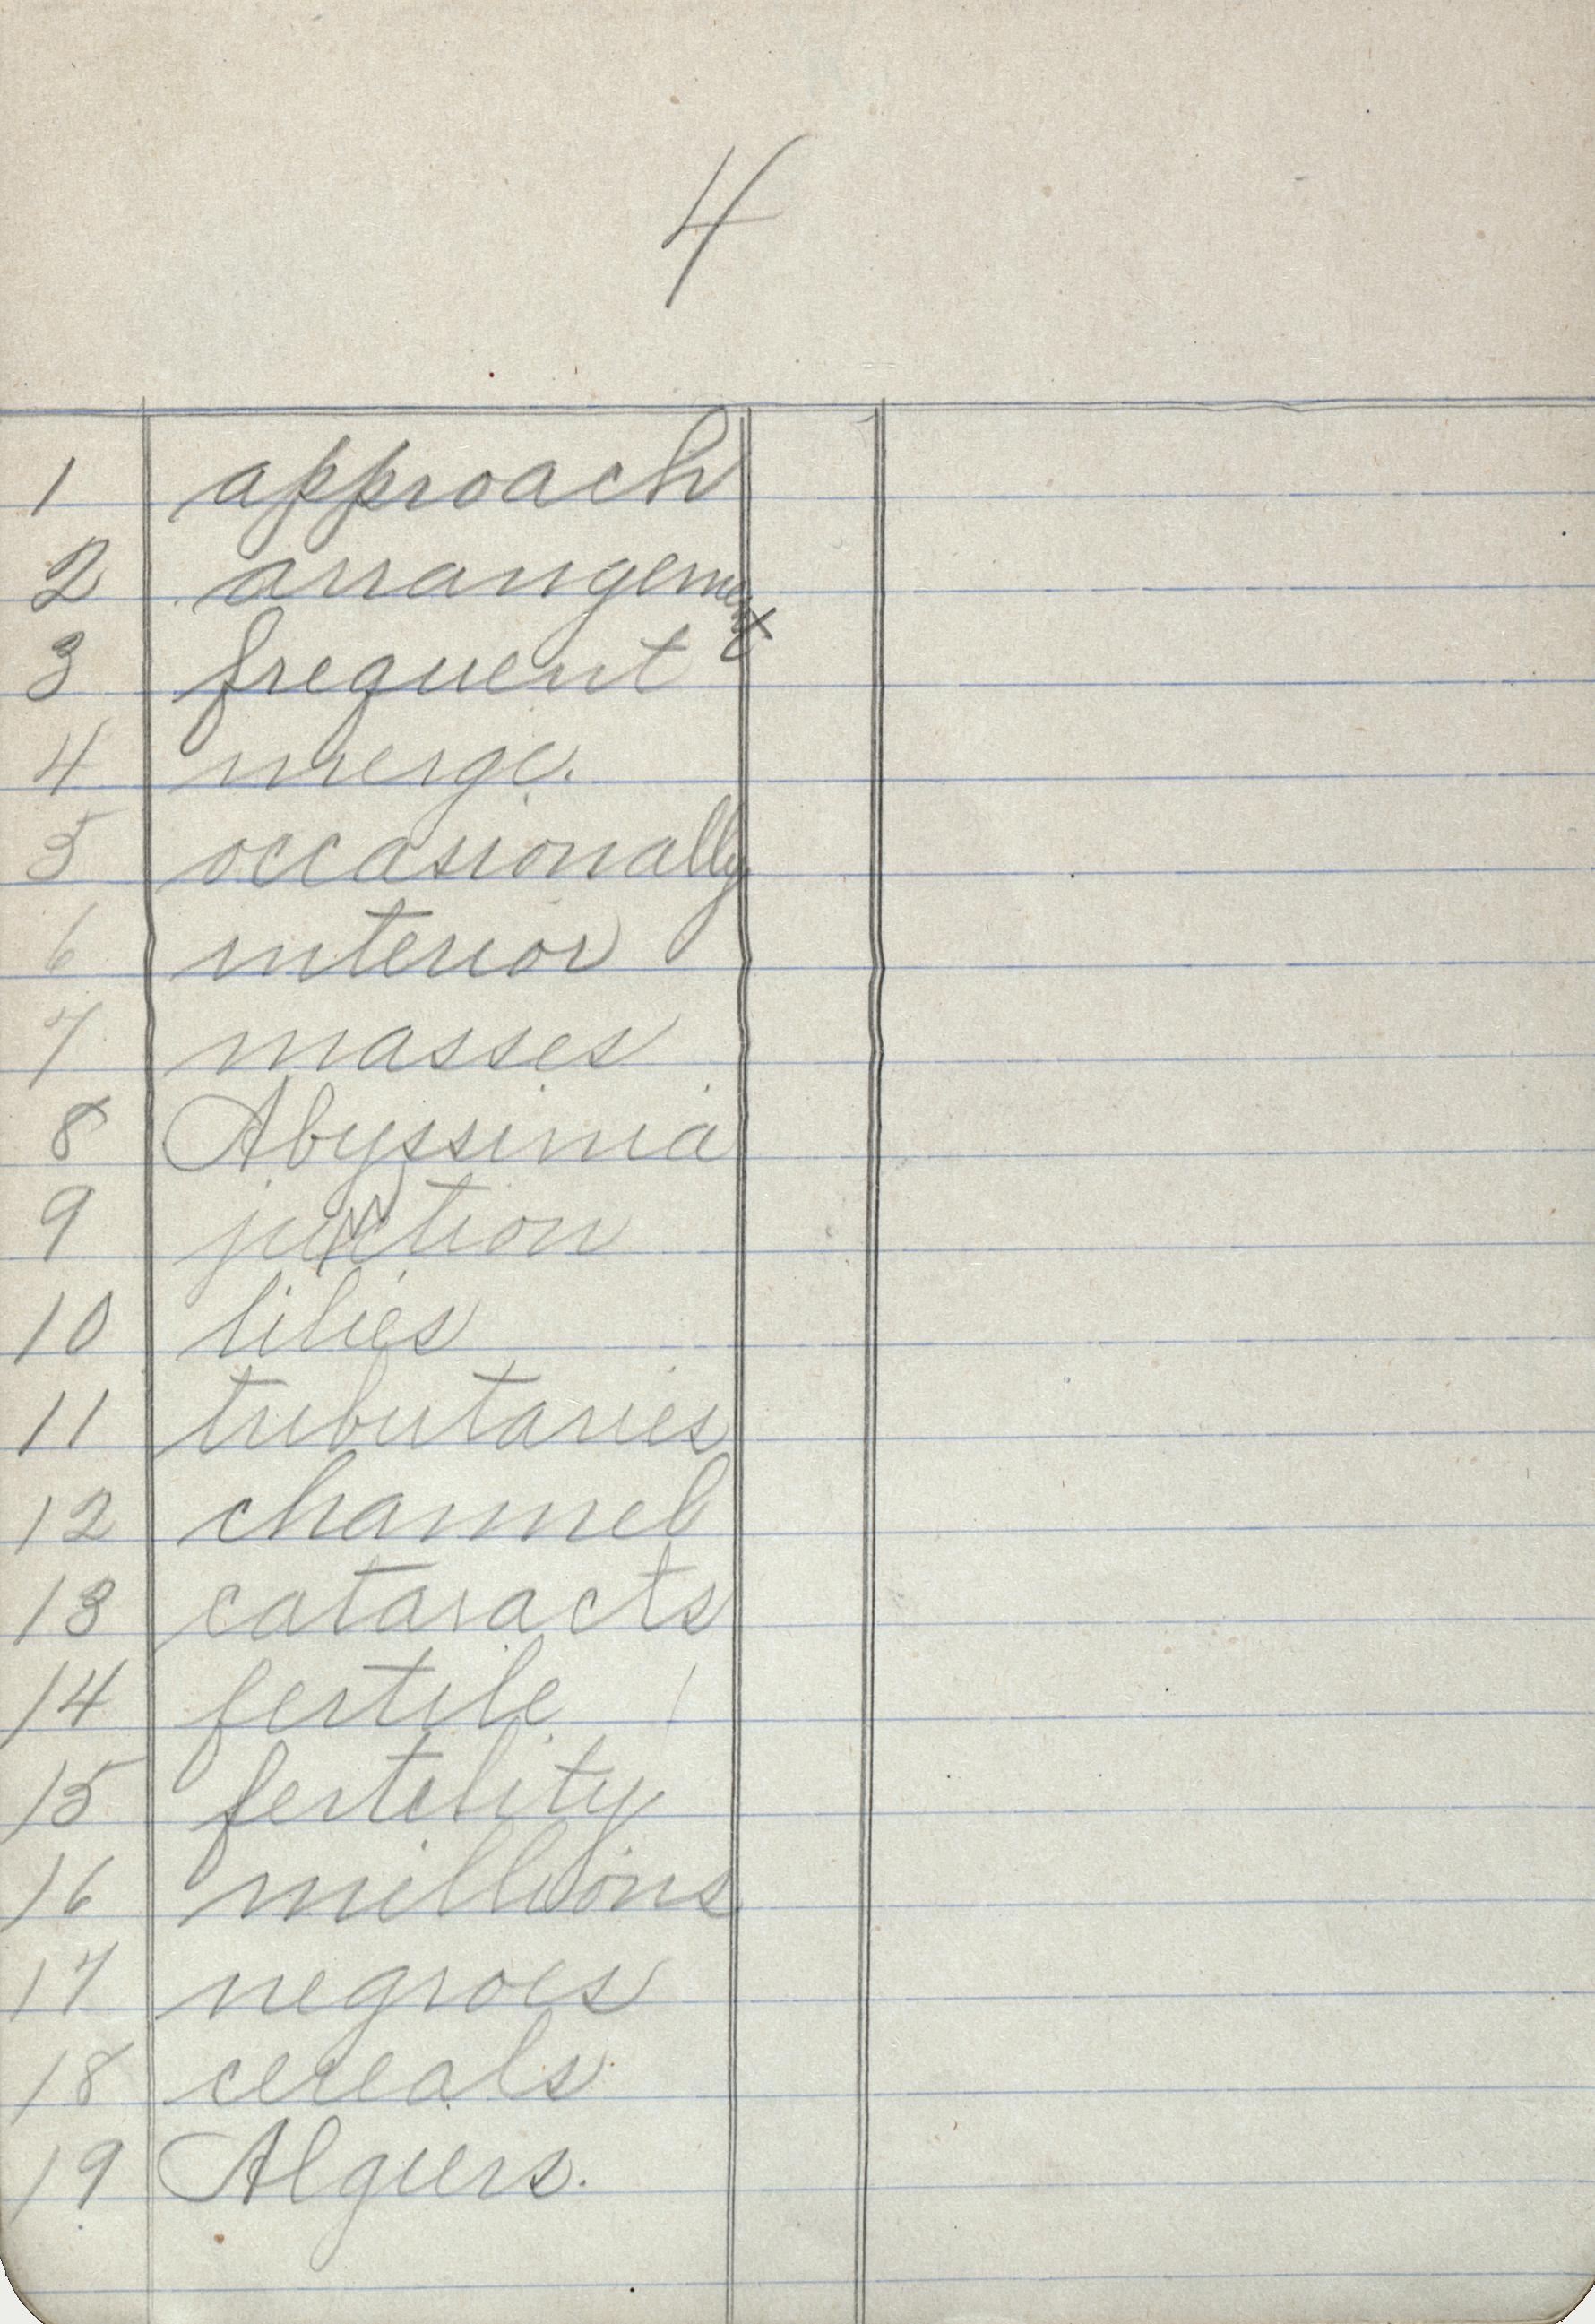 4
1 approach
2 arrangement
3 frequent
4 merge.
5 occasionally
6 interior
7 masses
8 Abyssinia
9 junction
10 lilies
11 tributaries
12 channel
13 cataracts
14 fertile
15 fertility
16 millions
17 negroes
18 cereals
19 Algiers.